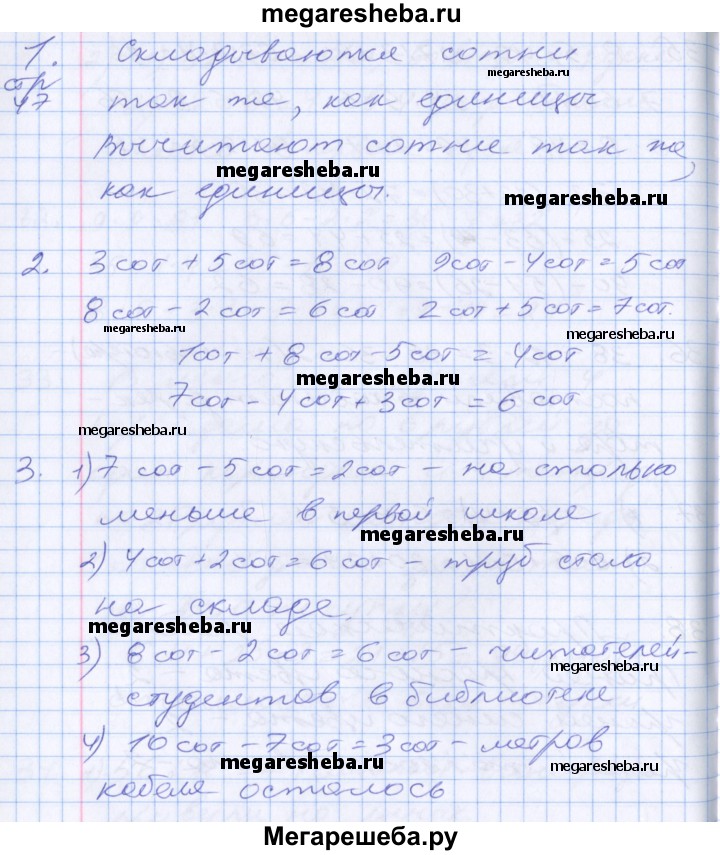 megaresheba.ru
1. Складываются сотни
megaresheba.ru
стр 47 так же, как единицы
Вычитают сотни так же,
megaresheba.ru megaresheba.ru
как единицы.
2. 3 сот + 5 сот = 8 сот 9 сот - 4 сот = 5 сот
8 сот - 2 сот = 6 сот 2 сот + 5 сот = 7 сот.
megaresheba.ru megaresheba.ru
1 сот + 8 сот - 5 сот = 4 сот
megaresheba.ru
7 сот - 4 сот + 3 сот = 6 сот
megaresheba.ru
3. 1) 7 сот - 5 сот = 2 сот - на столько
меньше в первой школе
megaresheba.ru
2) 4 сот + 2 сот = 6 сот - труб стало
на складе.
megaresheba.ru
3) 8 сот - 2 сот = 6 сот - читателей-
megaresheba.ru
студентов в библиотеке
4) 10 сот - 7 сот = 3 сот - метров
megaresheba.ru megaresheba.ru
кабеля осталось
Мегарешеба.ру